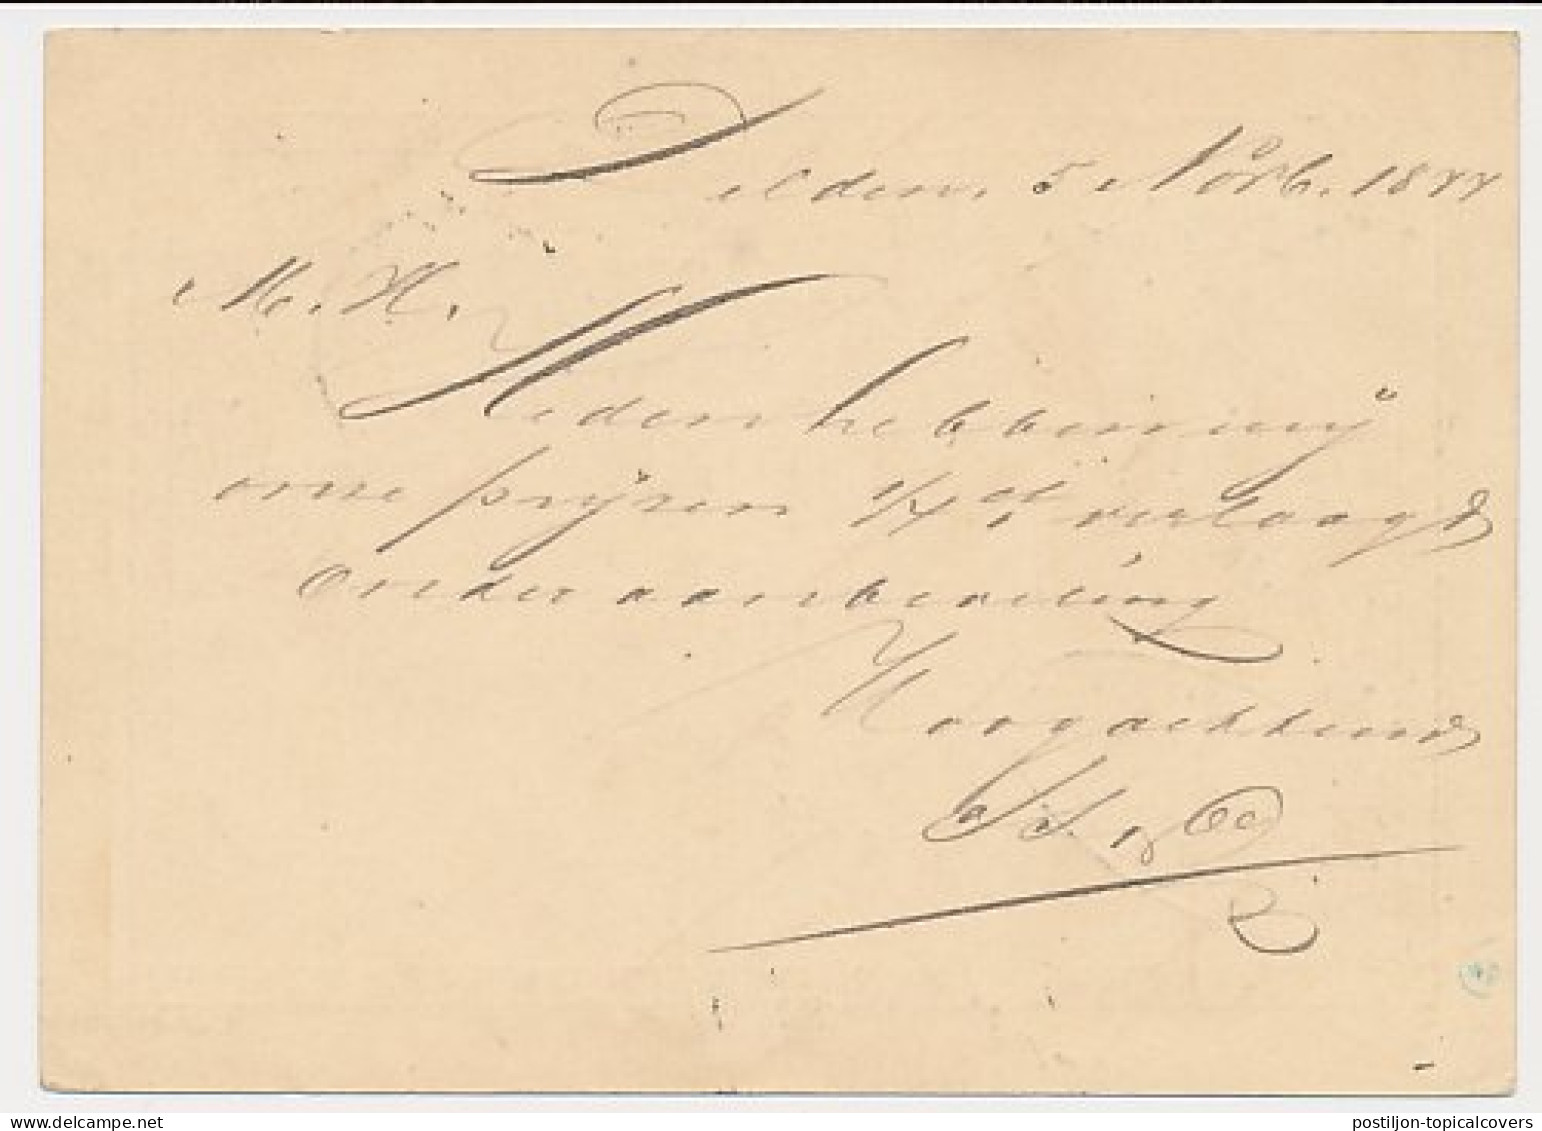 Delden, 5 Novb. 1877
M. H.
Heden hebben wij
onze prijzen 1/4 ct verlaagd
Onder aanbeveling
Hoogachtend
postiljon-topicalcovers